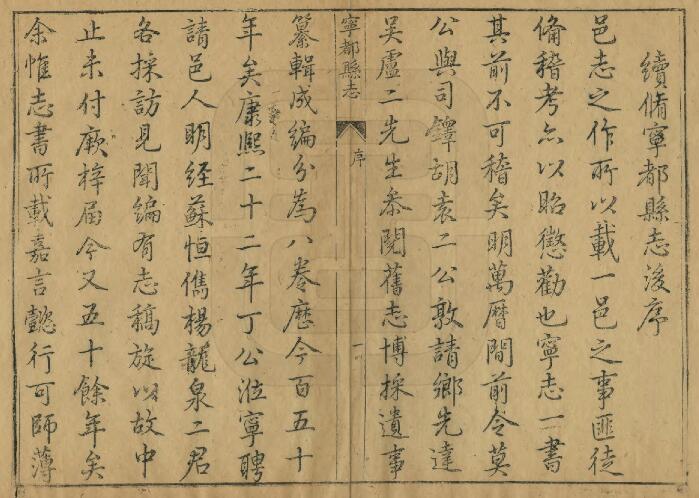 續脩寧都縣志後序
邑志之作所以載一邑之事匪徒
備稽考亦以昭懲勸也寧志一書
其前不可稽矣明萬曆間前令莫
公與司鐸胡袁二公敦請鄉先達
吳盧二先生叅閱舊志博採遺事
寧都縣志
序
一
纂輯成編分為八卷歷今百五十
年矣康熙二十二年丁公涖寧聘
請邑人明經蘇恒儁楊龍泉二君
各採訪見聞編有志稿旋以故中
止未付厥梓屆今又五十餘年矣
余惟志書所載嘉言懿行可師薄